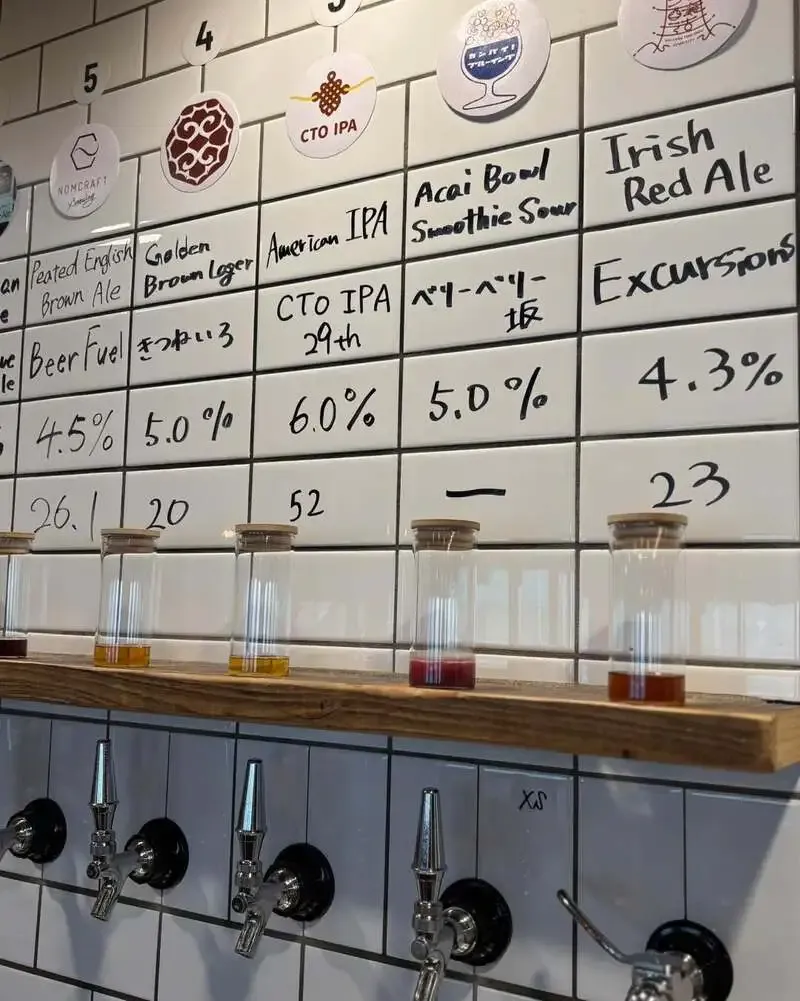 5
4
NOMCRAFT
Brewing
CTO IPA
カンパイ!
ブルーイング
an
e
Peated English
Brown Ale
Golden
Brown Lager
American IPA
Acai Bowl
Smoothie Sour
Irish
Red Ale
le
Beer Fuel
きつねいろ
CTO IPA
29th
ベリーベリー
坂
Excursions
4.5%
5.0%
6.0%
5.0%
4.3%
26.1
20
52
—
23
XS